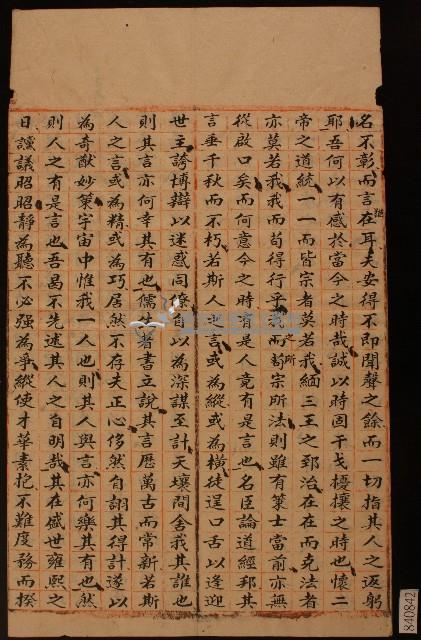 名不彰而言在耳夫安得不即聞聲之餘而一切指其人之返躬
耶吾何以有感於當今之時哉誠以時固干戈擾攘之時也懷二
帝之道統一一而皆宗者莫若我緬三王之郅治在在而克法者
亦莫若我我而苟得行乎我之所而苟宗所法則雖有策士當前亦無
從啟口矣而何意今之時有是人竟有是言也名臣論道經邦其
言垂千秋而不朽若斯人之言或為縱或為橫徒逞口舌以逢迎
世主誇博辯以迷惑同僚自以為深謀至計天壤間舍我其誰也
則其言亦何幸其有也儒生著書立說其言歷萬古而常新若斯
人之言或為精或為巧居然不存夫正心侈然自詡其得計遂以
為奇猷妙策宇宙中惟我一人也則其人與言亦何樂其有也然
則人之有是言也吾曷不先述其人之自明哉其在盛世雍熙之
日讜議昭昭靜為聽不必強為爭縱使才華素抱不難度務而揆
840842